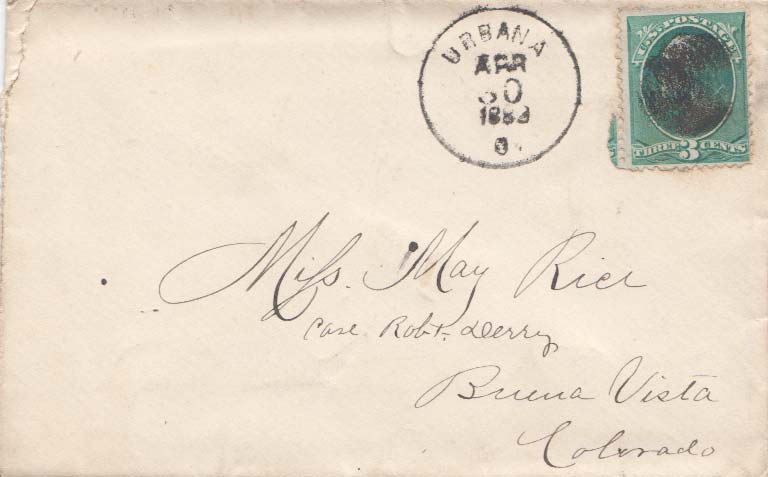 URBANA
APR
30
1883
O.
U.S. POSTAGE
THREE 3 CENTS
Miss. May Rice
Care Robt. Derry
Buena Vista
Colorado